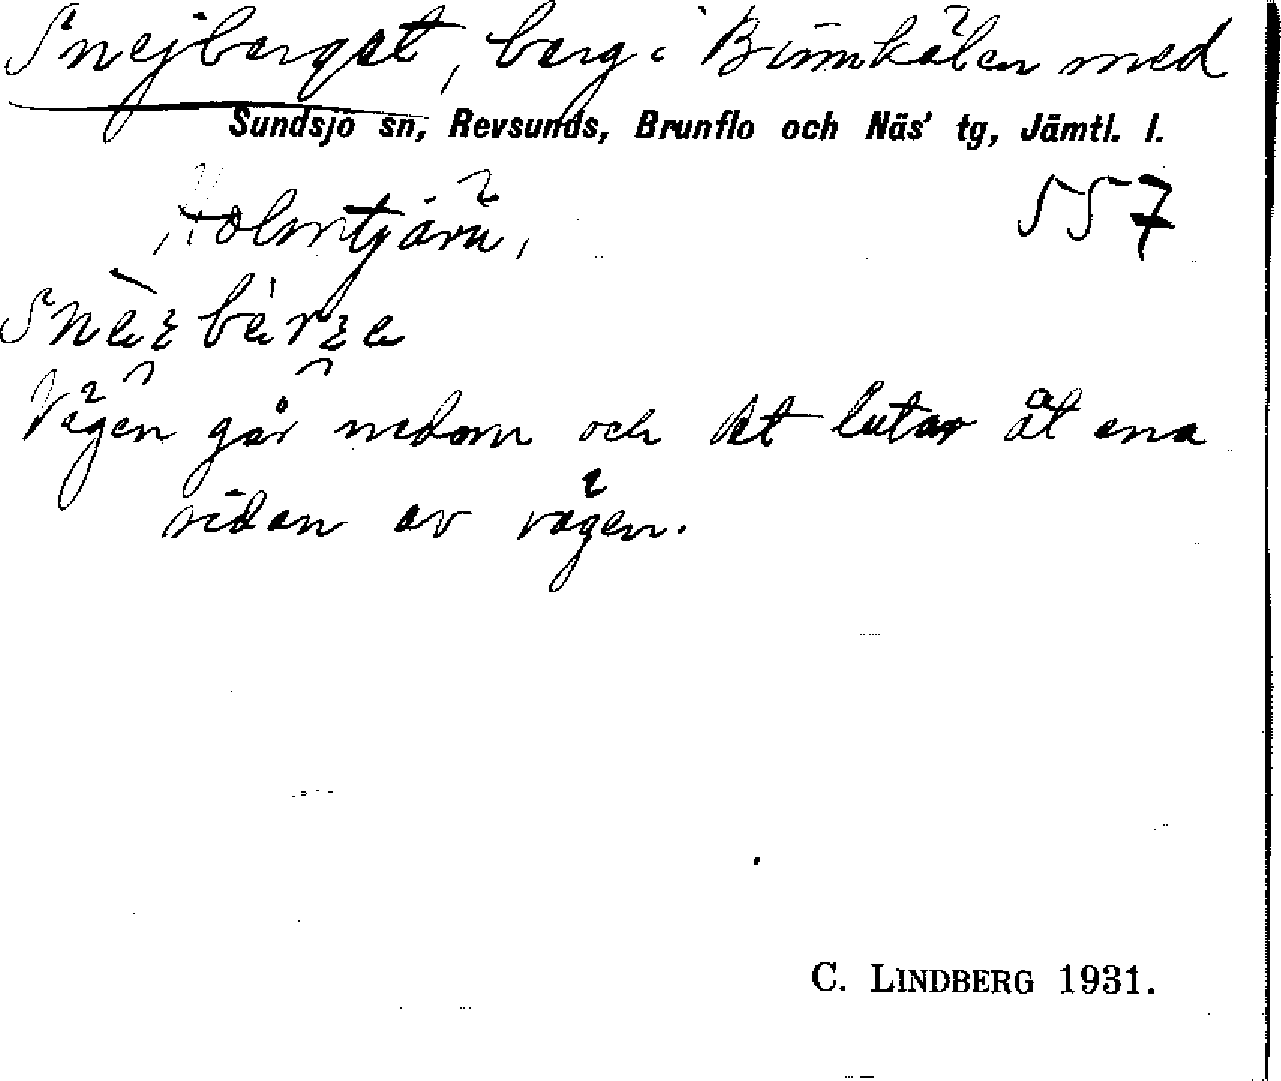 Snejberget, berg i Binnkälen med
Sundsjö sn, Revsunds, Brunflo och Näs' tg, Jämtl. l.
Holmtjärn,
557
Vägen går nedom och det lutar åt ena
sidan av vägen.
C. LINDBERG 1931.